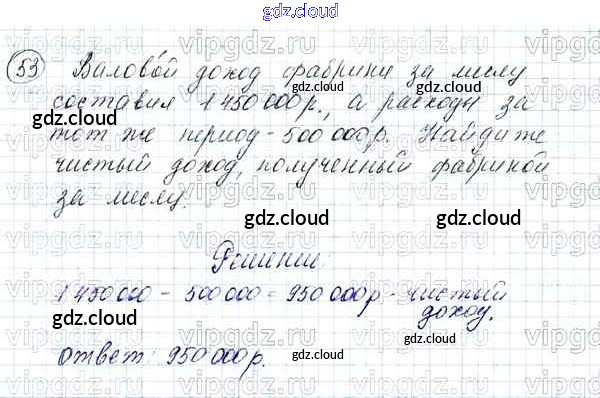 gdz.cloud
53 Валовой доход фабрики за месяц
составил 1 450 000 р., а расходы за
тот же период - 500 000 р. Найдите
чистый доход, полученный фабрикой
за месяц.
gdz.cloud
gdz.cloud
gdz.cloud
gdz.cloud
gdz.cloud
Решение:
1 450 000 - 500 000 = 950 000 р - чистый
доход.
gdz.cloud
gdz.cloud
Ответ: 950 000 р.
gdz.cloud
gdz.cloud